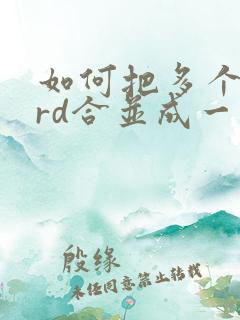 如何把多个
rd合并成一
殷缘
未经同意禁止转载